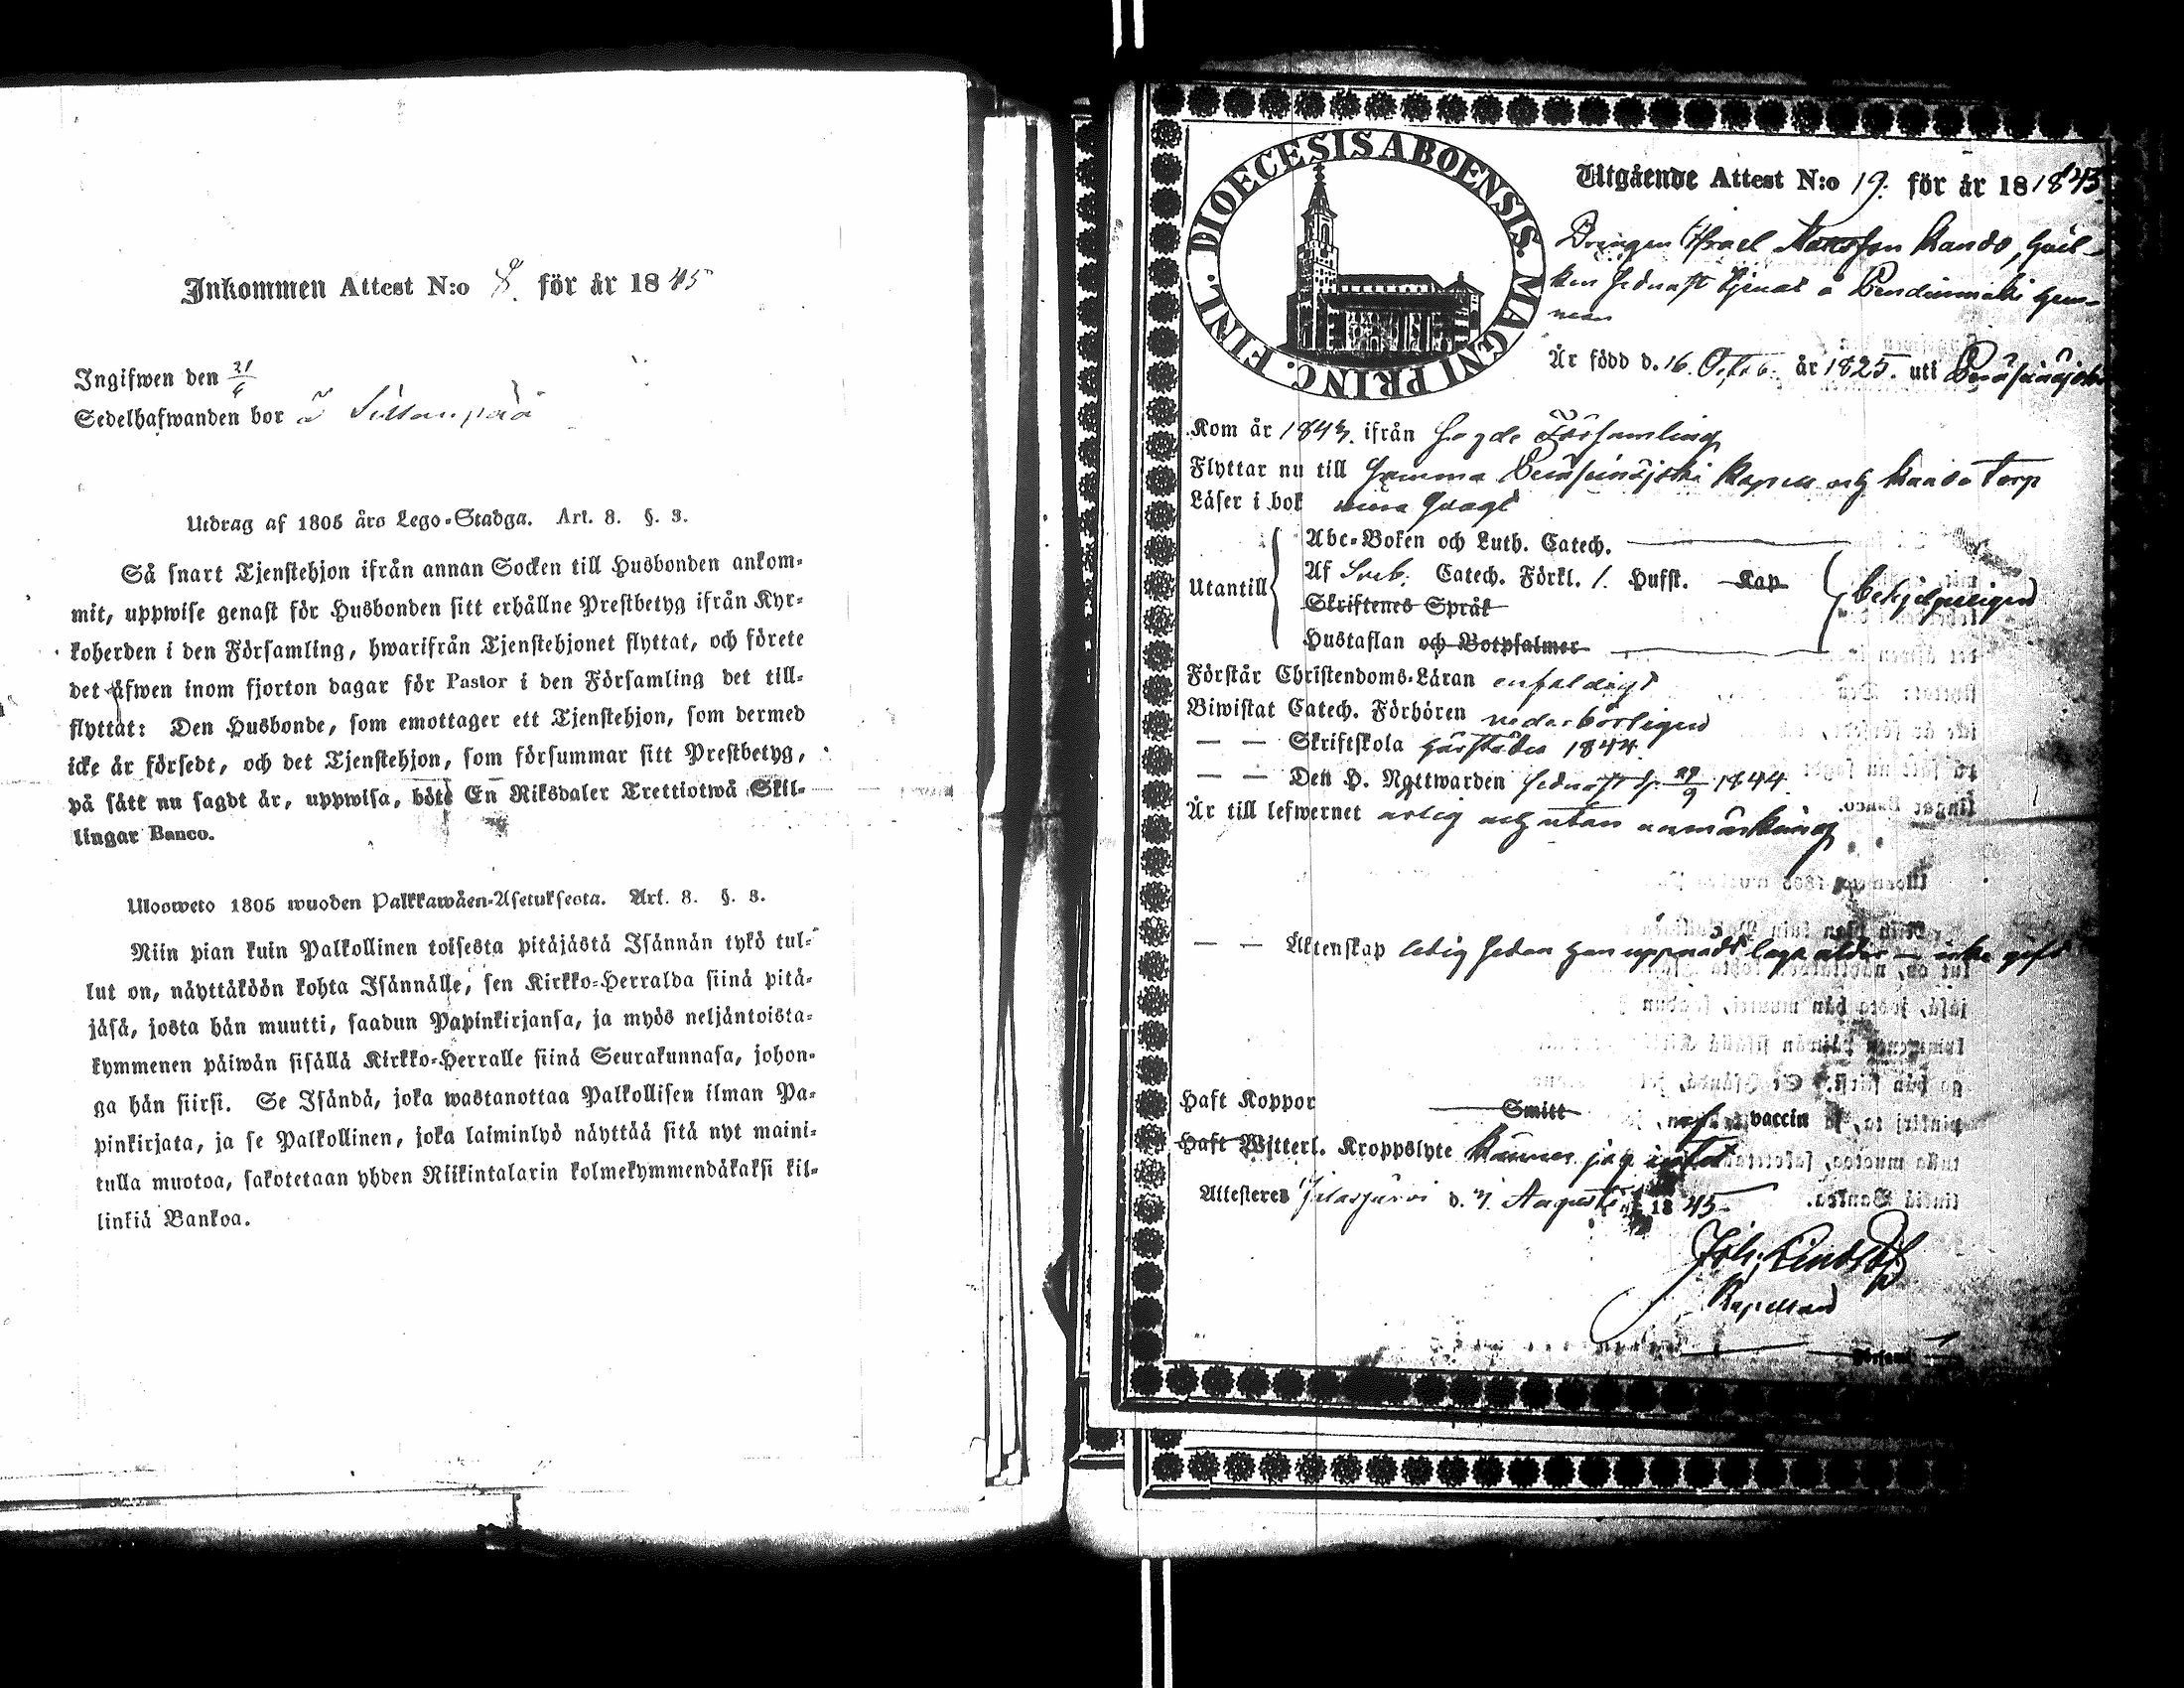 Inkommen Attest N:o 8. för år 1845
Ingifwen den 21/6
Sedelhafwanden bor å
Utdrag af 1805 års Lego-Stadga. Art. 8. §. 3.
Så snart Tjenstehjon ifrån annan Socken till Husbonden ankom-
mit, uppwise genast för Husbonden sitt erhållne Prestbetyg ifrån Kyr-
koherden i den Församling, hwarifrån Tjenstehjonet flyttat, och förete
det äfwen inom fjorton dagar för Pastor i den Församling det till-
flyttat: Den Husbonde, som emottager ett Tjenstehjon, som dermed
icke är försedt, och det Tjenstehjon, som försummar sitt Prestbetyg,
på sätt nu sagdt är, uppwisa, böte En Riksdaler Trettiotwå Skil-
lingar Banco.
Ulosweto 1805 wuoden Palkkawäen-Asetuksesta. Art. 8. §. 3.
Niin pian kuin Palkollinen toisesta pitäjästä Isännän tykö tul-
lut on, näyttäköön kohta Isännälle, sen Kirkko-Herralda siinä pitä-
jäsä, josta hän muutti, saadun Papinkirjansa, ja myös neljäntoista-
kymmenen päiwän sisällä Kirkko-Herralle siinä Seurakunnasa, johon-
ga hän siirsi. Se Isändä, joka wastanottaa Palkollisen ilman Pa-
pinkirjata, ja se Palkollinen, joka laiminlyö näyttää sitä nyt maini-
tulla muotoa, sakotetaan yhden Riikintalarin kolmekymmendäkaksi kil-
linkiä Bankoa.
DIOECESIS ABOENSIS. MAGNI PRINC. FINL.
Utgående Attest N:o 19. för år 181845
Drengen Israel Kando, hvil-
ken sednast tjenat å hem-
man
Är född d. 16. Octob. år 1825. uti Peräseinäjoki
Kom år 1843. ifrån sagde Församling
Flyttar nu till samma Peräseinäjoki Kapell och Kando Torp
Läser i bok
Utantill
Abc-Boken och Luth. Catech.
Af Sveb. Catech. Förkl. 1. Hufst. Kap
Skriftenes Språk
Hustaflan och Botpsalmer
behjelpeligen
Förstår Christendoms-Läran enfaldigt
Biwistat Catech. Förhören vederbörligen
— — Skriftskola härstädes 1844.
— — Den H. Nattwarden sednast d. 29/9 1844.
Är till lefwernet ärlig och utan anmärkning
— — Äktenskap ledig sedan han uppnådt laga ålder — icke gift
Haft Koppor Smitt vaccin
Haft Wjtterl. Kroppslyte känner jag intet
Attesteres Jalasjärvi d. 7. Augusti 1845
Joh: Lindstedt
Kapellan
Församl